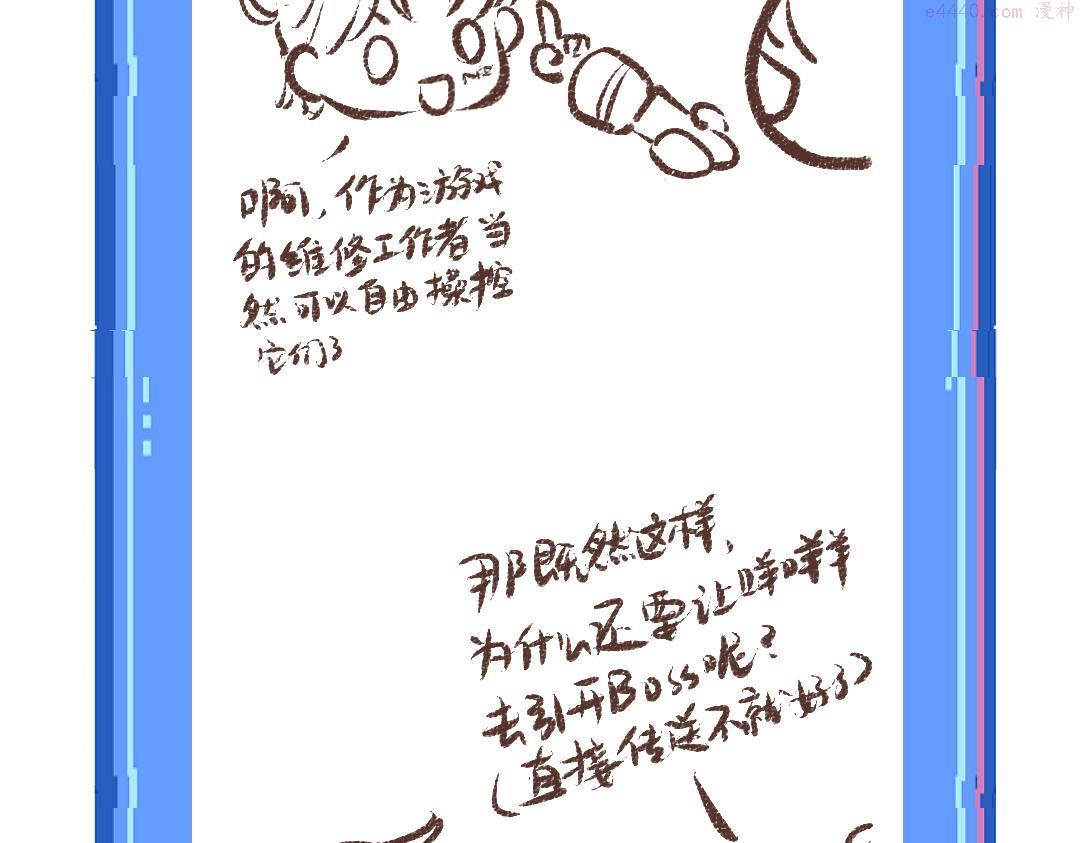 e4440.com 漫神
啊,作为游戏
的维修工作者当
然可以自由操控
它们了
那既然这样,
为什么还要让咩咩
去引开Boss呢?
(直接传送不就好了)